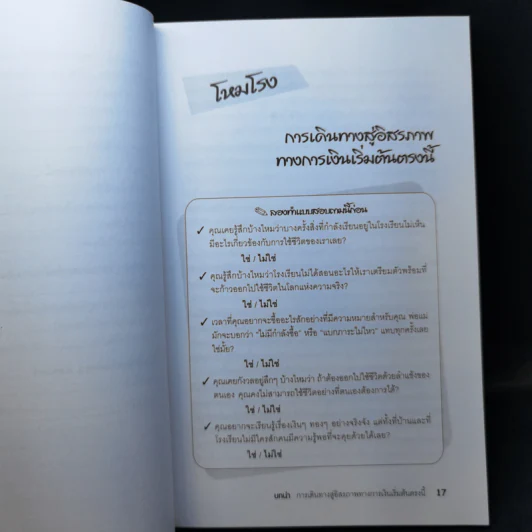 โหมโรง
การเดินทางสู่อิสรภาพ
ทางการเงินเริ่มต้นตรงนี้
ลองทำแบบสอบถามนี้ก่อน
✓ คุณเคยรู้สึกบ้างไหมว่าบางครั้งสิ่งที่กำลังเรียนอยู่ในโรงเรียนไม่เห็น
มีอะไรเกี่ยวข้องกับการใช้ชีวิตของเราเลย?
ใช่ / ไม่ใช่
✓ คุณรู้สึกบ้างไหมว่าโรงเรียนไม่ได้สอนอะไรให้เราเตรียมตัวพร้อมที่
จะก้าวออกไปใช้ชีวิตในโลกแห่งความจริง?
ใช่ / ไม่ใช่
✓ เวลาที่คุณอยากจะซื้ออะไรสักอย่างที่มีความหมายสำหรับคุณ พ่อแม่
มักจะบอกว่า "ไม่มีกำลังซื้อ" หรือ "แบกภาระไม่ไหว" แทบทุกครั้งเลย
ใช่มั้ย?
ใช่ / ไม่ใช่
✓ คุณเคยกังวลอยู่ลึกๆ บ้างไหมว่า ถ้าต้องออกไปใช้ชีวิตด้วยลำแข้งของ
ตนเอง คุณคงไม่สามารถใช้ชีวิตอย่างที่ตนเองต้องการได้?
ใช่ / ไม่ใช่
✓ คุณอยากจะเรียนรู้เรื่องเงินๆ ทองๆ อย่างจริงจัง แต่ทั้งที่บ้านและที่
โรงเรียนไม่มีใครสักคนมีความรู้พอที่จะคุยด้วยได้เลย?
ใช่ / ไม่ใช่
บทนำ การเดินทางสู่อิสรภาพทางการเงินเริ่มต้นตรงนี้ 17